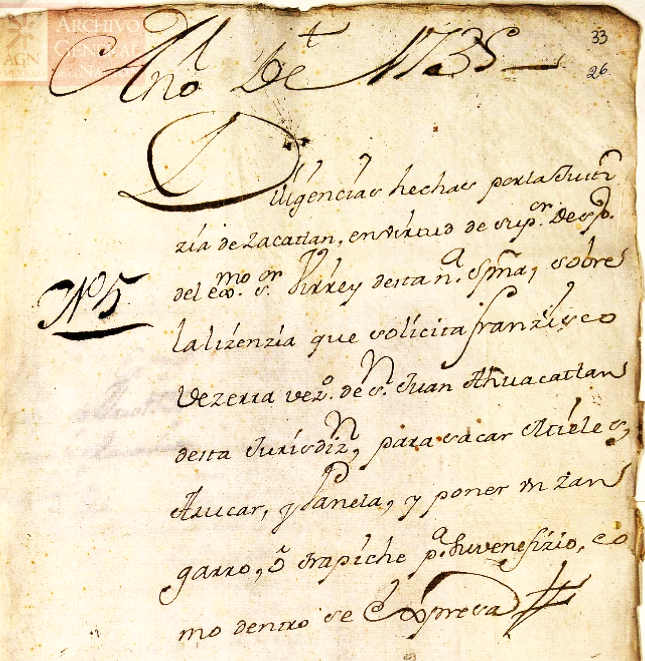 ARCHIVO
GENERAL
AGN
Año De 1735
33
26
Diligencias hechas por la Justi
zia de Zacatlan, en virtud de sup.or Desp.o
del exmo. sr. Virrey desta n.a Spña, sobre
la lizenzia que solicita Franzisco
Vezerra vez.o de sn. Juan Ahuacatlan
desta Jurisdizn, para sacar Mieles,
Azucar, y Panela, y poner un Zan
garro, ô trapiche p.a su venefizio, co
mo dentro se Expresa
No 5